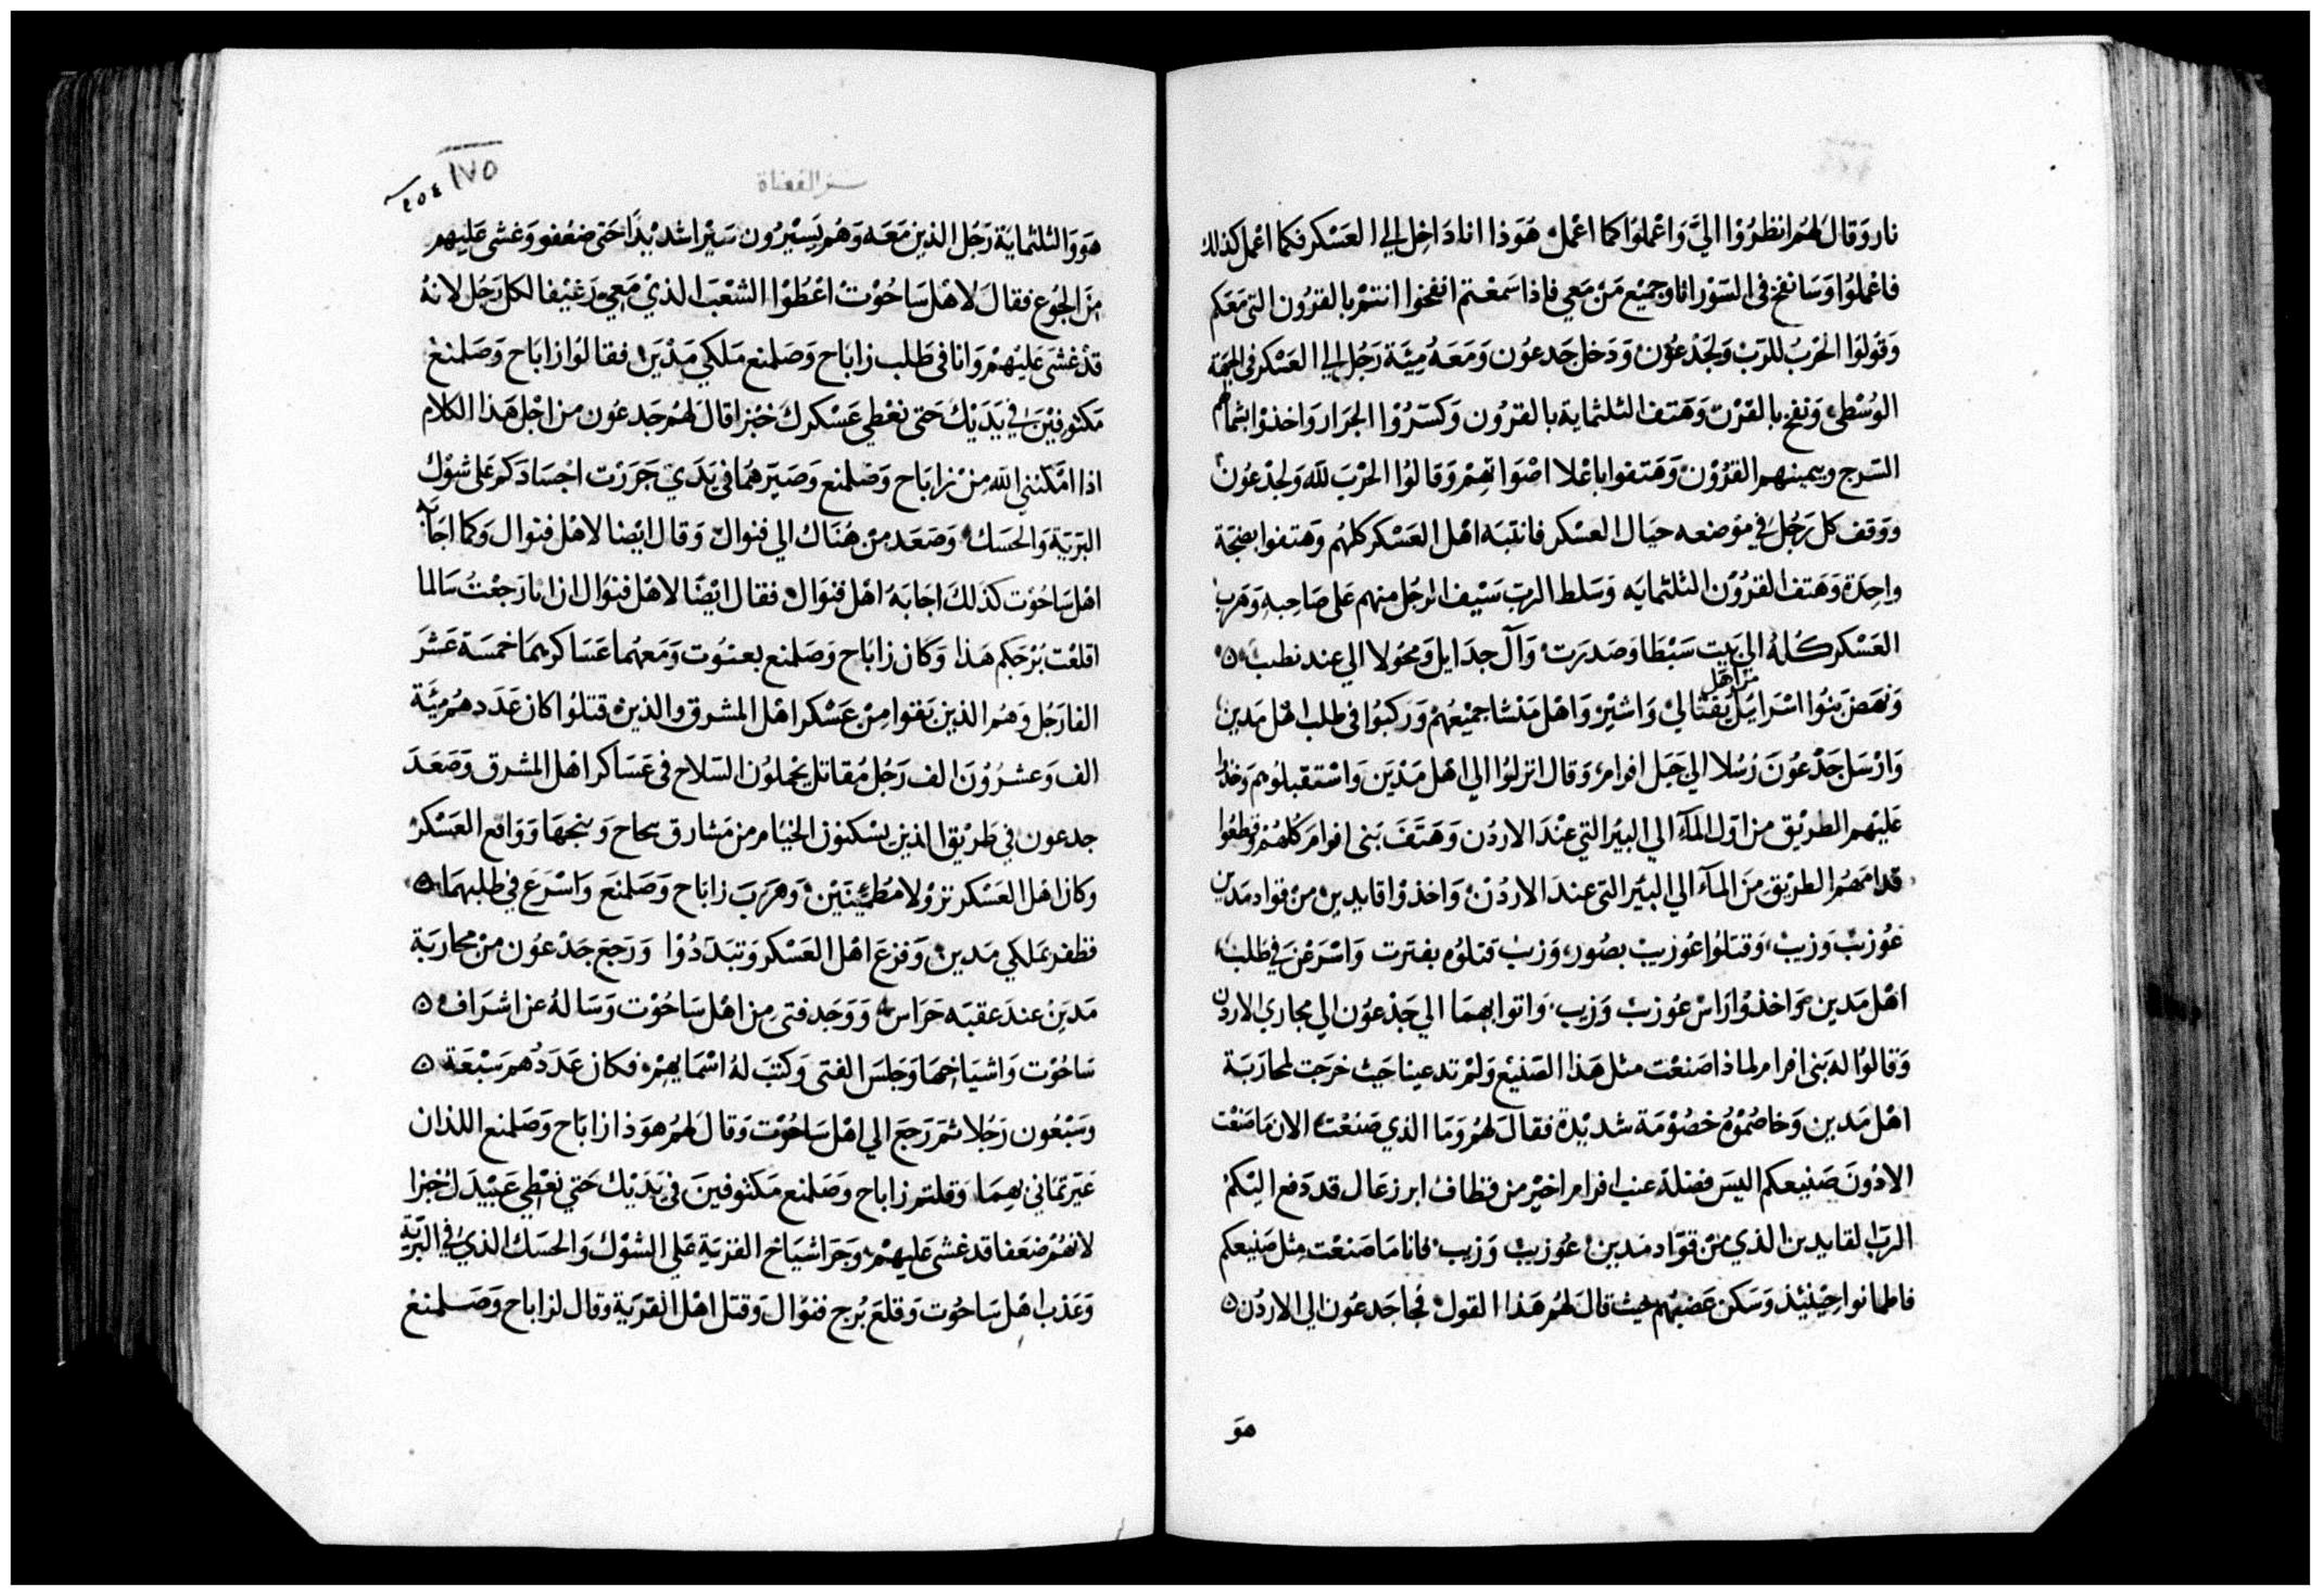 نار وَقالَ لهُم انظرُوْا اليَّ وَاعْملوُا كما اعْملُ هُوَذا انا دَاخِل الي العَسْكر فكما اعْمل كذلك
فاعْملوُا وَسَانفخ في السَوْر انا وجميْع مَنْ مَعي فاذا سَمعْتم انفخوا انتمْ بالقرُون التي مَعَكم
وَقوْلوُا الحَرْبُ للرّبْ وَلجَدْعوْن وَدَخل جَدعوُن وَمَعَهُ مِيَّة رَجُل الي العَسْكر في الجهَة
الوُسْطي وَنفخ بالقرْن وَهَتف الثلثماية بالقرُون وَكسَّرُوْا الجرَار وَاخذوْا بشمالهم
السَرج وبيمينهم القرُوْن وَهَتفوا باعْلا اصْوَاتهِمْ وَقالوُا الحْرْبَ للّه وَلجدْعوُن
وَوَقف كل رَجُل في مَوْضعه حيَال العَسْكر فانتبَه اهْل العَسْكر كلهُم وَهتفوا بضجّة
وَاحِدَة وَهَتف القرُوْن الثلثمايَه وَسَلط الربّ سَيْف الرجُل منهم عَلى صَاحِبهِ وَهَربَ
العَسْكر كُلهُ الي بَيت سَبْطا وَصَدرَت وَآل جدَايل وَمحوُلا الي عند نطب ٥
وَنهَضَ بَنوُا اسْرَايْل من اهل نفْتالي وَاشيْر وَاهْل مَنشا جميْعهُمْ وَرَكبوُا في طلب اهْل مَدين
وَارْسَل جَدْعوُنَ رُسُلا الي جَبل افرام وَقال انزلوُا الي اهْل مَدْيَن وَاسْتقبلوُهم وَخذوا
عَليْهم الطريْق من اوَل المآءِ الي البيْر التي عنْدَ الاردُن وَهَتَفَ بَني افرامَ كلهُم وقطعُوا
قدامَهُم الطريْق مِنَ المآء الي البيَر التي عندَ الاردُنْ وَاخذوْا قايدين من قوَاد مَدين
عُوزيْبْ وَزيبْ وَقتَلوُا عُوْزيبْ بصُور وَزيبْ قتلوُه بفترت وَاسْرَعْنَ في طلب
اهْل مَدين وَاخذوُا رَاس عوُزيبْ وَزيب وَاتوا بهمَا الي جَدْعوُن الي مجاري الاردن
وَقالوُا له بَني افرام لماذا صَنعْت مثل هَذا الصَنيْع وَلمْ تدعينا حَيث خرَجت لمحَارَبَة
اهْل مَدين وَخاصُموُهُ خصُوْمَة شديْدة فقالَ لهُم وَمَا الذي صَنعْت الان مَا صَنعْت
الادْونَ صَنيعكم اليسَ فضلة عنب افرام اخيْر من قطاف ابرزعَال قد دَفع اليْكمْ
الربّ القايدين الذي من قوَّاد مَدين عُوزيبْ وَزيب فانا مَا صَنعْت مِثل صَنيعكم
فاطمانوا حِيْنئِذ وَسَكن غضبُهم حيث قالَ لهُم هَذا القول فجا جَدعوُن الي الاردُن ٥
هوَ
سفر القضاة
١٧٥
٤٥٤
هوَ وَالثلثماية رَجُل الذين مَعَه وَهُم يَسيْرُون سَيْرا شديْدًا حَتى ضعُفو وَغشى عَليْهم
منَ الجُوع فقالَ لاهْل سَاحُوْت اعْطُوْا الشعْبَ الذيْ مَعيْ رَغيْفا لكل رَجُل لانهُ
قدْ غشىَ عَليْهمْ وَانا في طَلب زابَاح وَصَلمنع مَلكي مَدْيَن فقالوُا زابَاح وَصَلمنعْ
مَكتوفيْنَ في يَدَيْك حَتى نعْطي عَسْكركَ خبْزا قالَ لهُم جَدعوُن من اجْل هَذا الكلام
اذا امّكننِي الله مِنْ زابَاح وَصَلمنع وَصَيّرهُما في يَدَي جَرَرْت اجْسَادَكم عَلى شوْك
البَرّيّة وَالحسَك وَصَعَدَ منْ هُنَاك الي فنوال وَقال ايْضا لاهْل فنوال وَكما اجَابَه
اهْل سَاحُوْت كذَلكَ اجَابَهُ اهْل فنوَال فقال ايْضًا لاهْل فنوَال ان انا رَجعْتُ سَالما
اقلعْت بُرْجكم هَذا وَكان زابَاح وَصَلمنع بعنوُت وَمَعهُما عَسَاكرهمَا خمسَة عَشَرَ
الفا رَجُل وَهُم الذين بَقوا مِنْ عَسْكر اهْل المشرق والذينْ قتلوُا كان عَدَدهُم مِيَّة
الف وَعشرُوْنَ الف رَجُل مُقاتل يحْملوُن السّلاح في عَسَاكر اهْل المشرق وَصَعَدَ
جدعون في طَريْق الذين يسْكنوْن الخيَام من مَشارق بحاح وَبنجهَا وَوَاقع العَسْكرْ
وَكان اهْل العَسْكر نزوْلا مُطمئِنّيْن وَهَرَبَ زابَاح وَصَلمنَع وَاسْرَعَ في طلبهمَا ٥
فظفرَ بمَلكي مَدين وَفزعَ اهْل العَسْكر وَتبَدّدُوْا وَرَجعَ جَدْعوُن منْ محاربَة
مَديَن عندَ عقبَه حَرَاس وَوَجَد فتى من اهْل سَاحُوْت وَسَالهُ عن اشرَاف ٥
سَاحُوْت وَاشيَاخهَا وَجَلسَ الفتى وَكتبَ لهُ اسْمَايهمْ فكان عَدَدُهم سَبْعَة ٥
وسَبْعُون رَجُلا ثمَ رَجَع الي اهْل سَاحُوْت وَقالَ لهُم هوَذا زابَاح وَصَلمنع اللذان
عَيرتمَاني بهمَا وَقلتم زاباح وصَلمنع مَكتوفينَ في يَدَيْك حَتي نعْطي عَبيْدَك خبْزا
لانهُمْ ضعَفا قد غشى عَليهمْ وَجَرّ اشيَاخ القريَة عَلي الشوْك وَالحسَك الذيْ في البَرّية
وَعَذب اهْل سَاحُوْت وَقلعَ بُرج فنوْال وَقتل اهْل القريَة وقال لزاباح وَصَلمنعْ